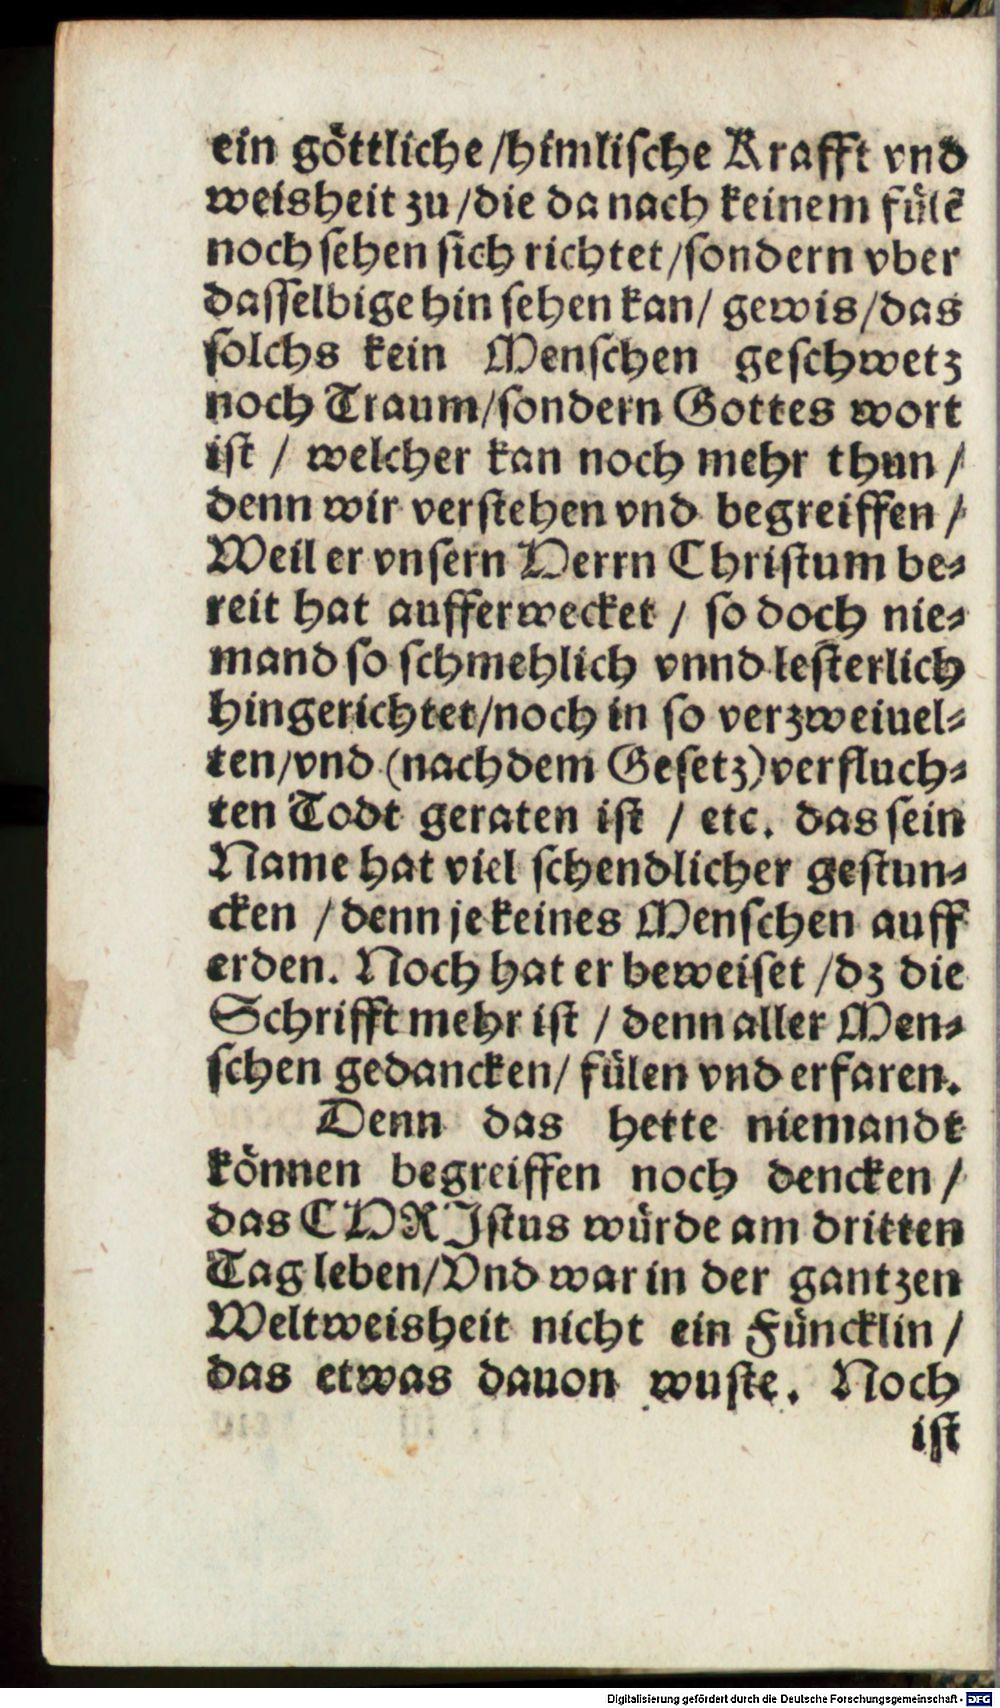 ein göttliche /himlische Krafft vnd
weisheit zu /die da nach keinem fülẽ
noch sehen sich richtet /sondern vber
dasselbige hin sehen kan/ gewis /das
solchs kein Menschen geschwetz
noch Traum/sondern Gottes wort
ist / welcher kan noch mehr thun /
denn wir verstehen vnd begreiffen /
Weil er vnsern Herrn Christum be⸗
reit hat aufferwecket / so doch nie⸗
mand so schmehlich vnnd lesterlich
hingerichtet/noch in so verzweiuel⸗
ten/vnd (nach dem Gesetz) verfluch⸗
ten Todt geraten ist / etc. das sein
Name hat viel schendlicher gestun⸗
cken / denn je keines Menschen auff
erden. Noch hat er beweiset /dz die
Schrifft mehr ist / denn aller Men⸗
schen gedancken/ fülen vnd erfaren.
Denn das hette niemandt
können begreiffen noch dencken /
das CHRIstus würde am dritten
Tag leben/Vnd war in der gantzen
Weltweisheit nicht ein Füncklin /
das etwas dauon wuste. Noch
ist
Digitalisierung gefördert durch die Deutsche Forschungsgemeinschaft - DFG